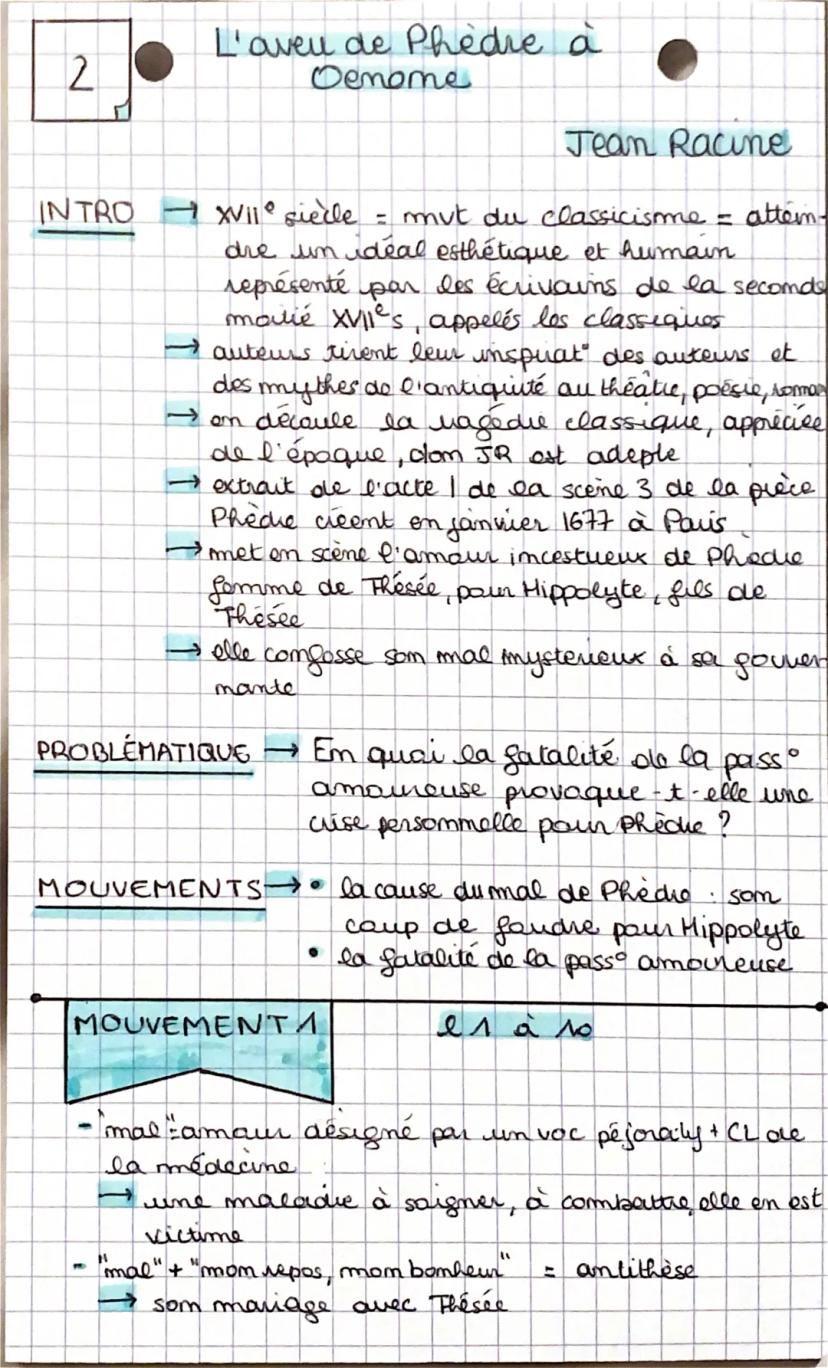 2
L'aveu de Phèdre à
Oenone
Jean Racine
INTRO → XVIIᵉ siècle = mvt du classicisme = attein-
dre un idéal esthétique et humain
représenté par les écrivains de la seconde
moitié XVIIᵉs, appelés les classiques
→ auteurs tirent leur inspirat° des auteurs et
des mythes de l'antiquité au théâtre, poésie, roman
→ en découle la tragédie classique, appréciée
de l'époque, don JR est adepte
→ extrait de l'acte 1 de la scène 3 de la pièce
Phèdre créent en janvier 1677 à Paris.
→ met en scène l'amour incestueux de Phèdre
femme de Thésée, pour Hippolyte, fils de
Thésée
→ elle confosse son mal mysterieux à sa gouver-
nante
PROBLÉMATIQUE → En quoi la fatalité de la pass°
amoureuse provoque-t-elle une
crise personnelle pour Phèdre ?
MOUVEMENTS → • la cause du mal de Phèdre : son
coup de foudre pour Hippolyte
• la fatalité de la pass° amoureuse
MOUVEMENT 1 l 1 à 10
- "mal" = amour désigné par un voc péjoratif + CL de
la médecine
→ une maladie à soigner, à combattre, elle en est
victime
- "mal" + "mon repos, mon bonheur" = antithèse
→ son mariage avec Thésée